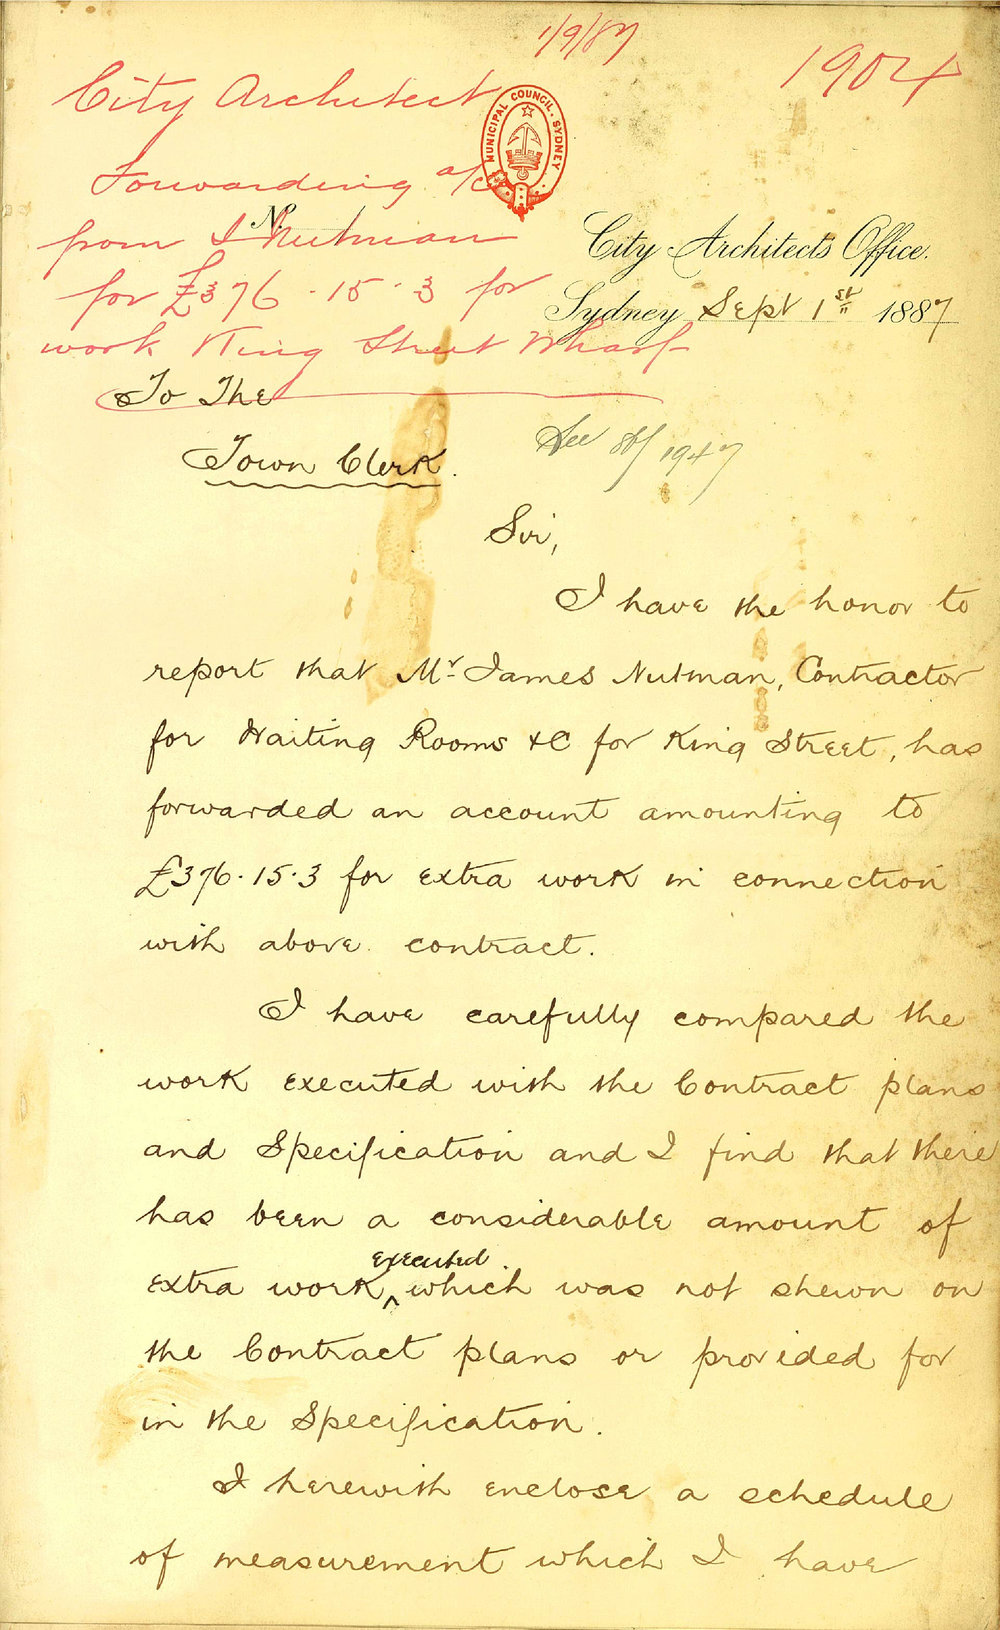 1/9/87
1904
City Architect
Forwarding a/c
from J Nutman
for £376.15.3 for
work King Street Wharf
MUNICIPAL COUNCIL. SYDNEY
No.
City Architects Office.
Sydney Sept 1st 1887
To The
Town Clerk.
See 87/1947
Sir,
I have the honor to
report that Mr James Nutman, Contractor
for Waiting Rooms &C for King Street, has
forwarded an account amounting to
£376.15.3 for extra work in connection
with above contract.
I have carefully compared the
work executed with the Contract plans
and Specification and I find that there
has been a considerable amount of
extra work executed which was not shewn on
the Contract plans or provided for
in the Specification.
I herewith enclose a schedule
of measurement which I have